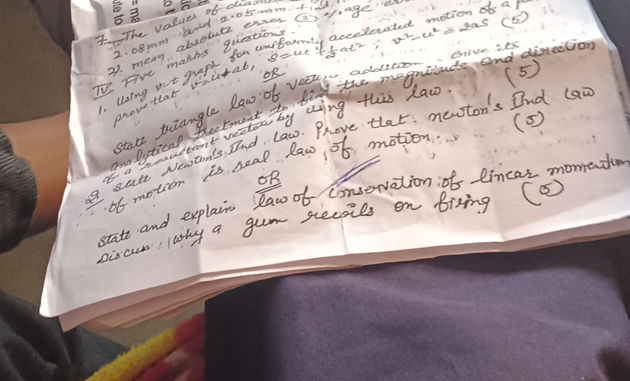 7. The values of
2.08 mm and 2.05 mm
2). mean absolute error (2) %age
IV Five marks questions.
1. Using v-t graph for uniformly accelerated motion of a
prove that v=u+at, S=ut+½at², v²-u²=2as (5)
OR
State triangle law of vector addition. Give its
analytical treatment to find the magnitude and direction
of a resultant vector by using this law. (5)
2. State Newton's IInd law. Prove that newton's IInd law
of motion is real law of motion. (5)
OR
State and explain law of conservation of linear momentum
Discuss why a gun recoils on firing (5)